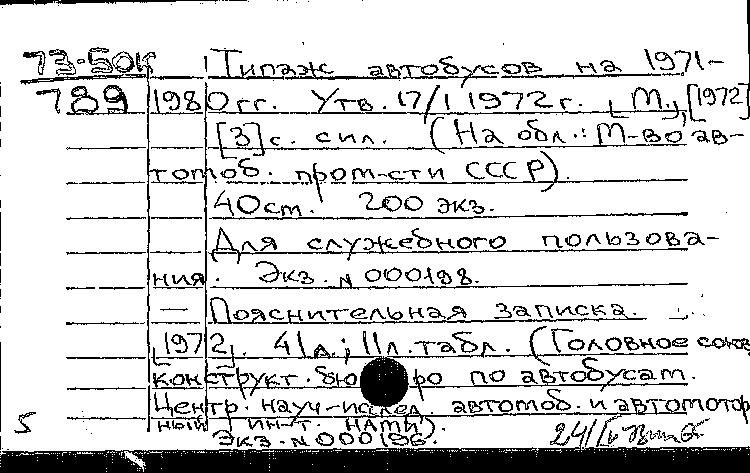 73-50К Типаж автобусов на 1971-
789 1980гг. Утв. 17/I 1972г. [М.], [1972]
[3]с. сил. (На обл.: М-во ав-
томоб. пром-сти СССР).
40см. 200 экз.
Для служебного пользова-
ния. Экз. № 000198.
— Пояснительная записка.
[1972]. 41л.; 11л. табл. (Головное союз.
конструкт. бюро по автобусам.
Центр. науч-исслед. автомоб. и автомотор
ный ин-т. НАМИ).
Экз. № 000196.
5